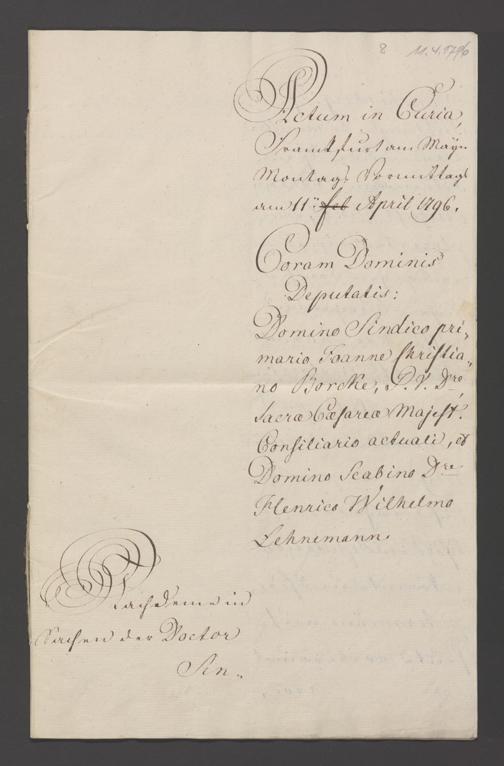 8 11.4.1796
Actum in Curia,
Frankfurt am Mayn
Montags Vormittags
am 11ⁿ feb April 1796.
Coram Dominis
Deputatis:
Domino Sindico pri=
mario Joanne Christia=
no Borcke, J. V. Dre,
Sacræ Cæsareæ Majest.
Consiliario actuali, et
Domino Scabino Dre
Henrico Wilhelmo
Lehnemann.
Nachdeme in
Sachen der Doctor
Sen=